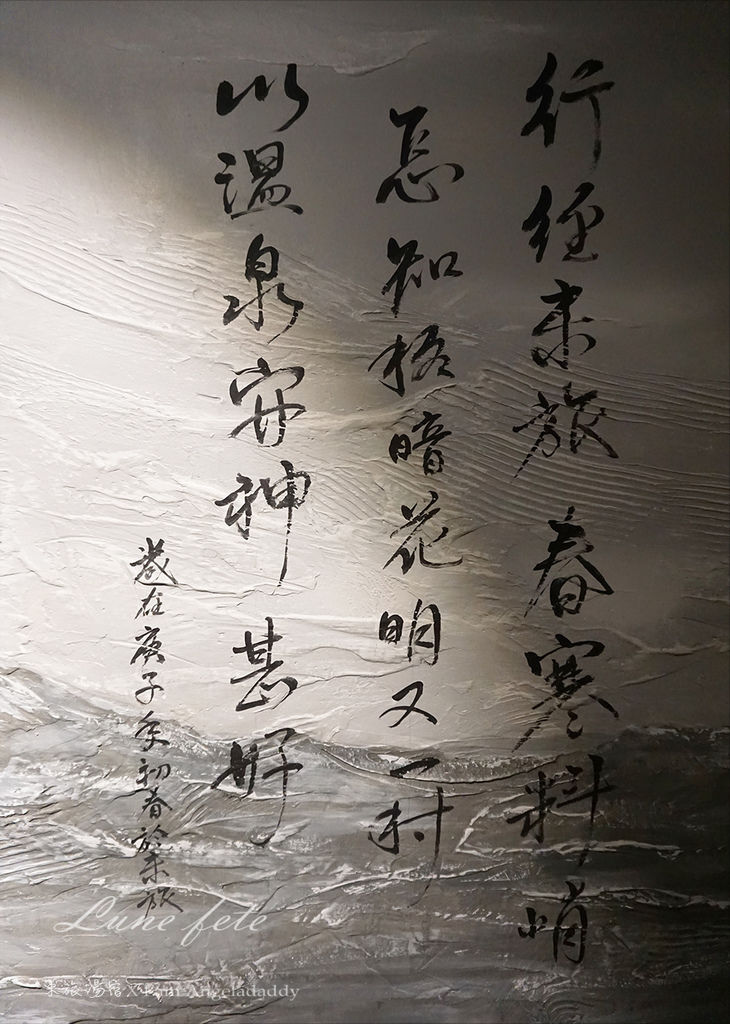 行經来旅 春寒料峭
怎知柳暗花明又一村
以溫泉安神 甚好
歲在庚子年初春於来旅
Lune fete
来旅湯宿 X Angeladaddy